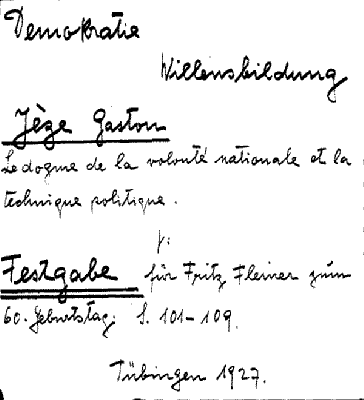 Demokratie
Willensbildung
Jèze Gaston
Le dogme de la volonté nationale et la
technique politique.
Festgabe für Fritz Fleiner zum
60. Geburtstag. S. 101-109.
Tübingen 1927.